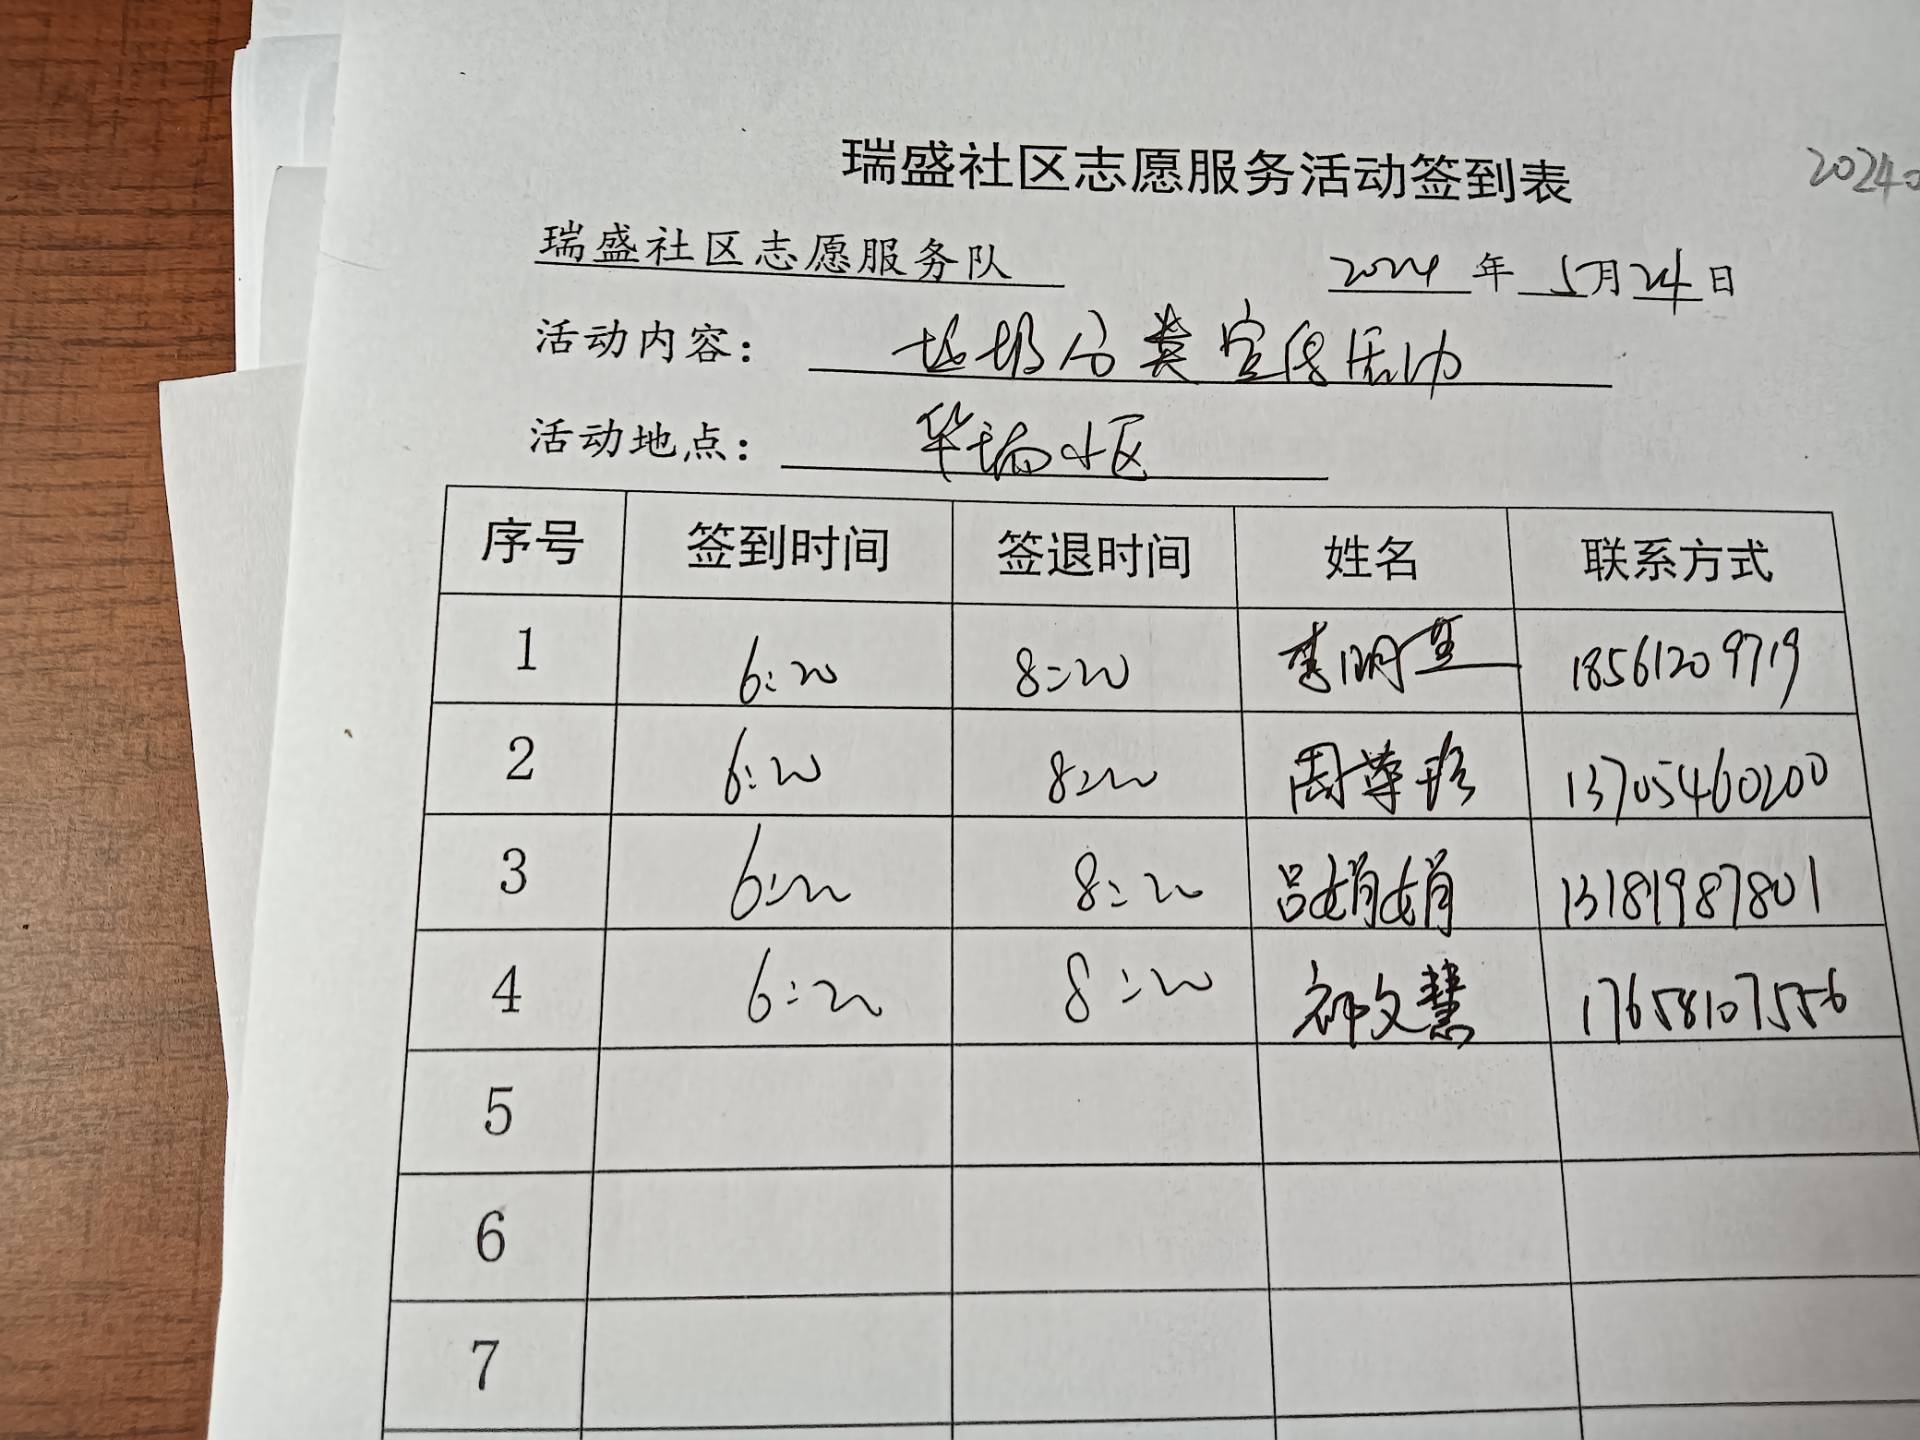 瑞盛社区志愿服务活动签到表
20240
瑞盛社区志愿服务队 2024年5月24日
活动内容: 垃圾分类宣传活动
活动地点: 华瑞小区
序号 签到时间 签退时间 姓名 联系方式
1 6:20 8:20 李明 18561209719
2 6:20 8:20 周尊珍 13705460200
3 6:20 8:20 吕娟娟 13181987801
4 6:20 8:20 祁文慧 17658107556
5
6
7